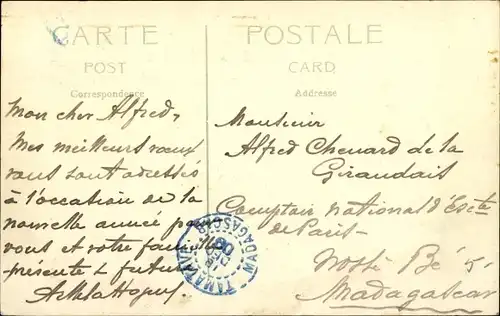 CARTE POSTALE
POST CARD
Correspondence Addresse
Mon cher Alfred,
Mes meilleurs vœux
vous sont adressés
à l'occation de la
nouvelle année pour
vous et votre famille
présente & future
Monsieur
Alfred Chenard de la
Giraudais
Comptoir National d'Escte
de Paris
Nossi Bé
Madagascar
TAMATAVE
MADAGASCAR